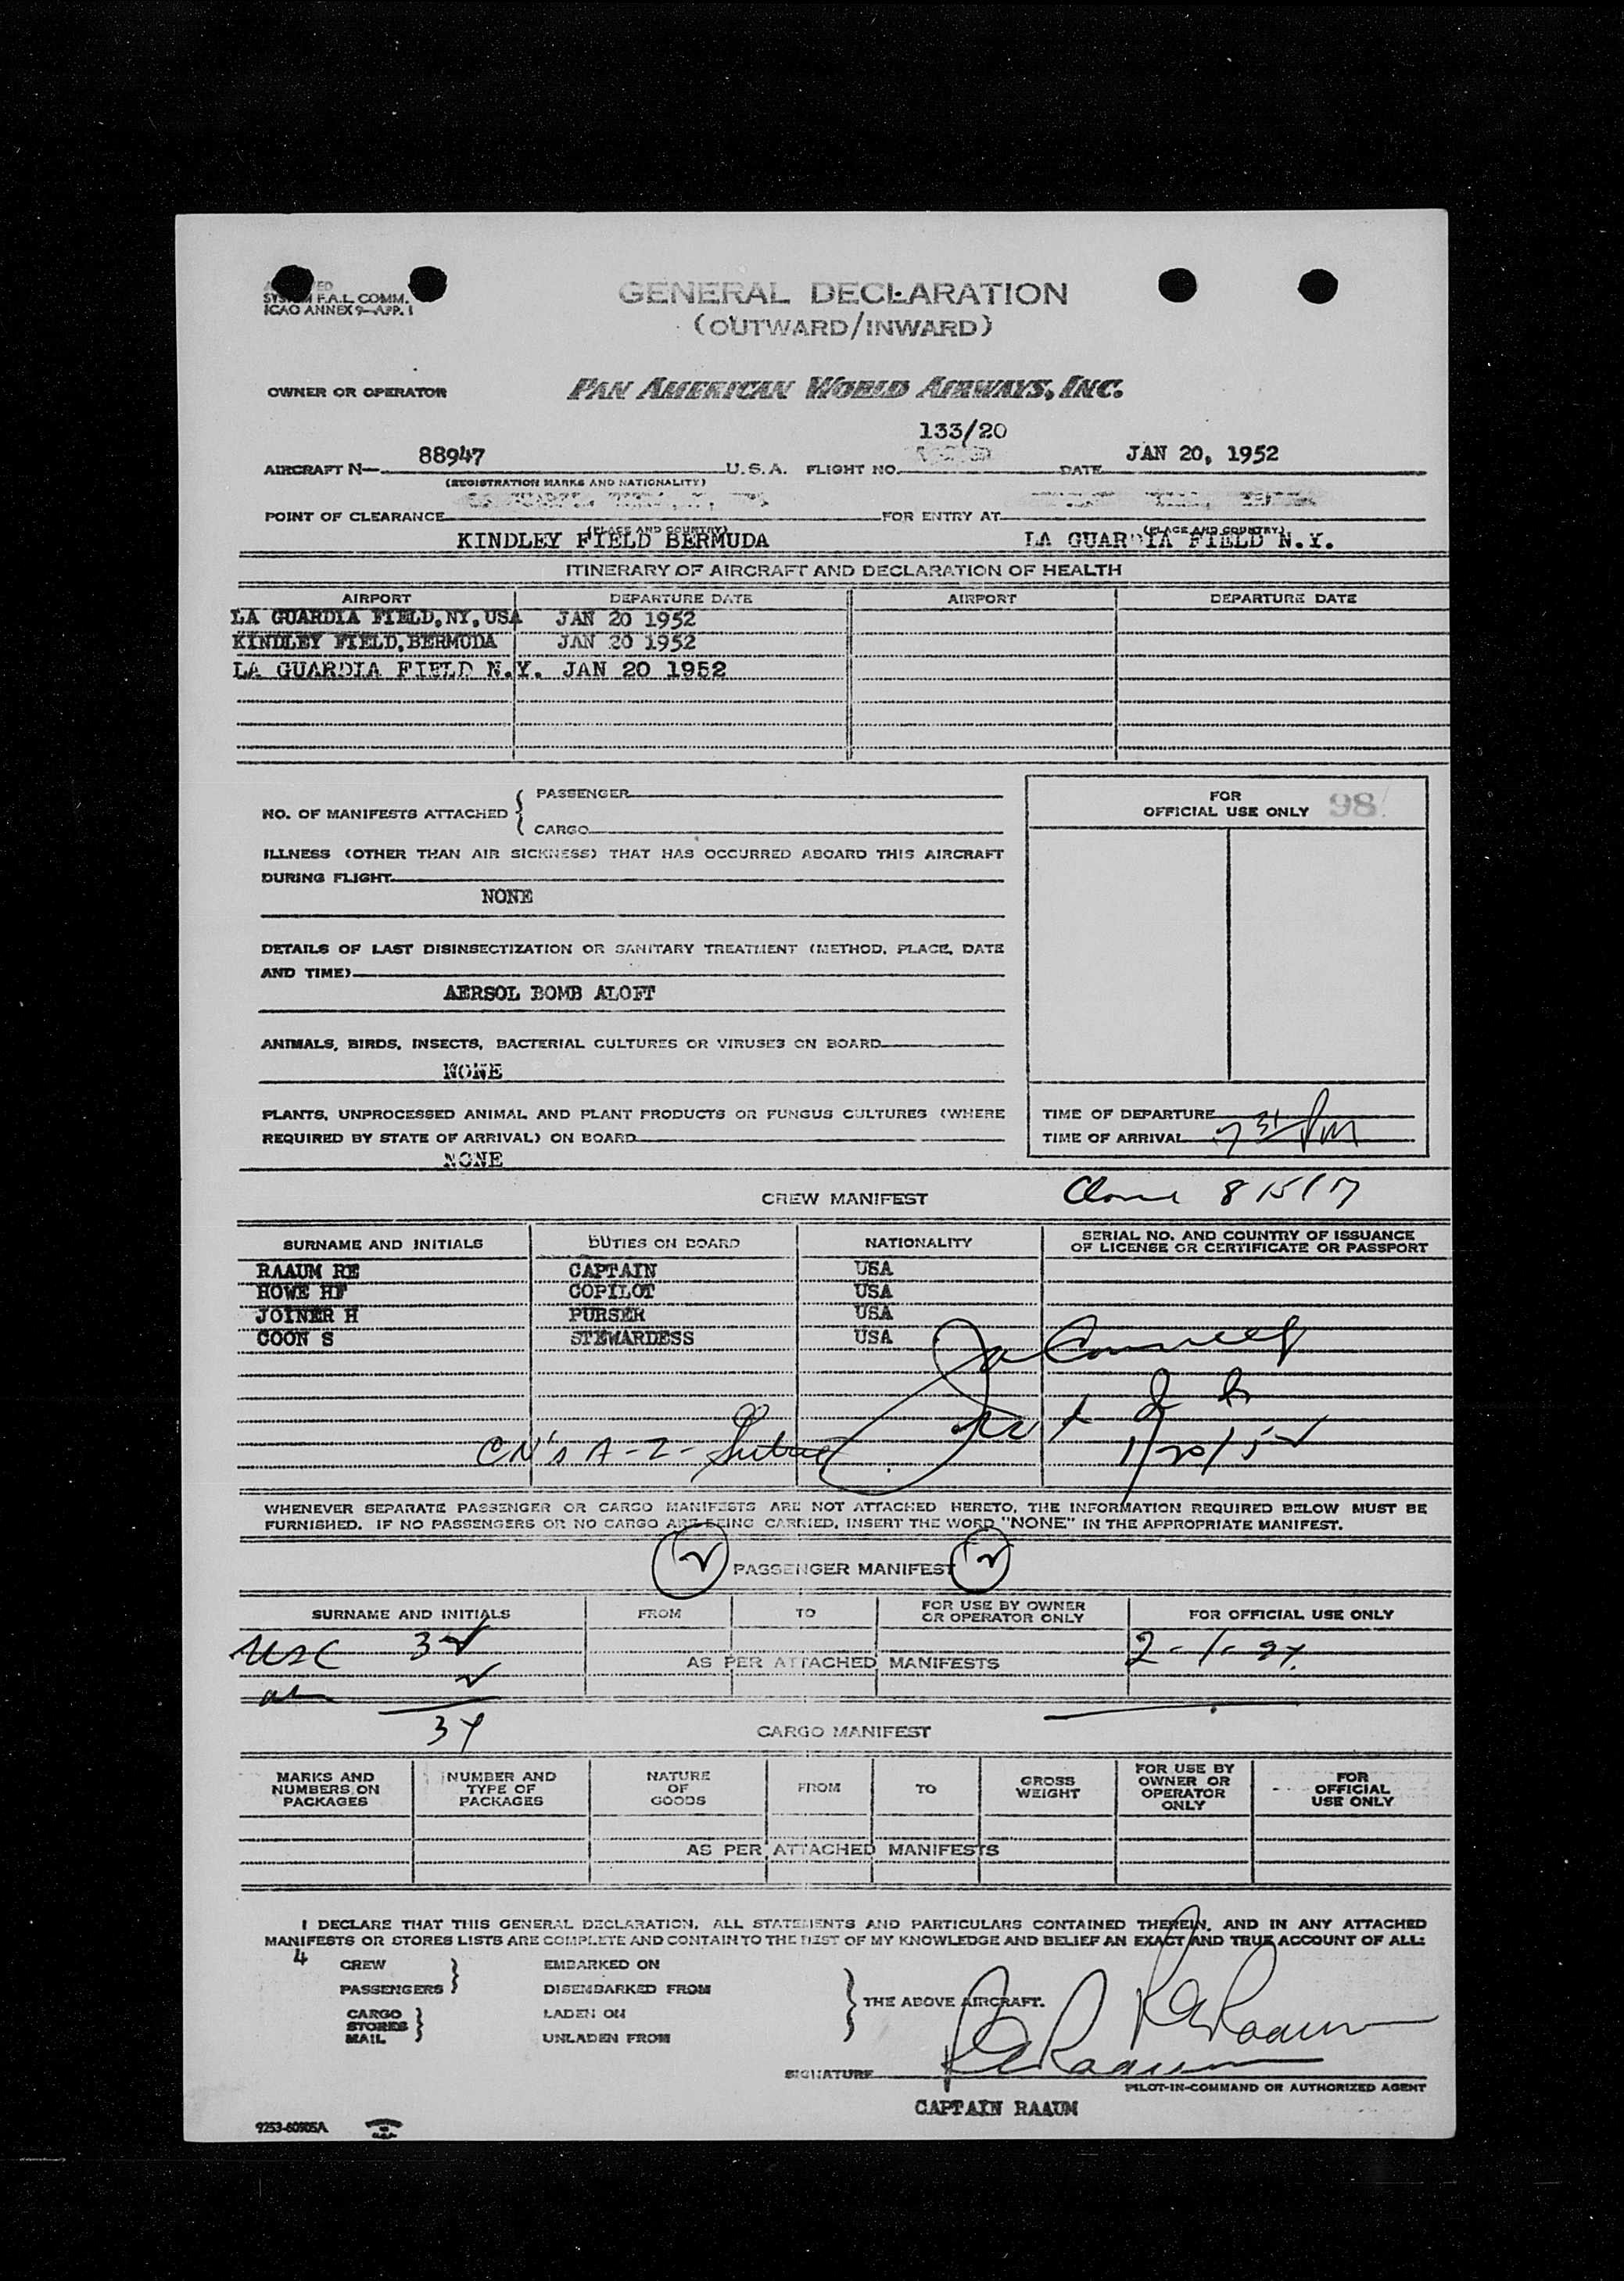 SYSTEM F.A.L. COMM.
ICAO ANNEX 9—APP. 1
GENERAL DECLARATION
(OUTWARD/INWARD)
OWNER OR OPERATOR PAN AMERICAN WORLD AIRWAYS, INC.
133/20
AIRCRAFT N— 88947 U.S.A. FLIGHT NO. DATE JAN 20, 1952
(REGISTRATION MARKS AND NATIONALITY)
POINT OF CLEARANCE FOR ENTRY AT
(PLACE AND COUNTRY) (PLACE AND COUNTRY)
KINDLEY FIELD BERMUDA LA GUARDIA FIELD N.Y.
ITINERARY OF AIRCRAFT AND DECLARATION OF HEALTH
AIRPORT DEPARTURE DATE AIRPORT DEPARTURE DATE
LA GUARDIA FIELD,NY,USA JAN 20 1952
KINDLEY FIELD,BERMUDA JAN 20 1952
LA GUARDIA FIELD N.Y. JAN 20 1952
NO. OF MANIFESTS ATTACHED
PASSENGER
CARGO
FOR
OFFICIAL USE ONLY 98
ILLNESS (OTHER THAN AIR SICKNESS) THAT HAS OCCURRED ABOARD THIS AIRCRAFT
DURING FLIGHT
NONE
DETAILS OF LAST DISINSECTIZATION OR SANITARY TREATMENT (METHOD, PLACE, DATE
AND TIME)
AERSOL BOMB ALOFT
ANIMALS, BIRDS, INSECTS, BACTERIAL CULTURES OR VIRUSES ON BOARD
NONE
PLANTS, UNPROCESSED ANIMAL AND PLANT PRODUCTS OR FUNGUS CULTURES (WHERE
REQUIRED BY STATE OF ARRIVAL) ON BOARD
NONE
TIME OF DEPARTURE
TIME OF ARRIVAL 7 31 PM
CREW MANIFEST
SURNAME AND INITIALS DUTIES ON BOARD NATIONALITY SERIAL NO. AND COUNTRY OF ISSUANCE
OF LICENSE OR CERTIFICATE OR PASSPORT
RAAUM RE CAPTAIN USA
HOWE HF COPILOT USA
JOINER H PURSER USA
COON S STEWARDESS USA
CN's A-2-
1/20/52
WHENEVER SEPARATE PASSENGER OR CARGO MANIFESTS ARE NOT ATTACHED HERETO, THE INFORMATION REQUIRED BELOW MUST BE
FURNISHED. IF NO PASSENGERS OR NO CARGO ARE BEING CARRIED, INSERT THE WORD "NONE" IN THE APPROPRIATE MANIFEST.
PASSENGER MANIFEST
SURNAME AND INITIALS FROM TO FOR USE BY OWNER
OR OPERATOR ONLY FOR OFFICIAL USE ONLY
USC
AS PER ATTACHED MANIFESTS
34
CARGO MANIFEST
MARKS AND
NUMBERS ON
PACKAGES
NUMBER AND
TYPE OF
PACKAGES
NATURE
OF
GOODS
FROM
TO
GROSS
WEIGHT
FOR USE BY
OWNER OR
OPERATOR
ONLY
FOR
OFFICIAL
USE ONLY
AS PER ATTACHED MANIFESTS
I DECLARE THAT THIS GENERAL DECLARATION, ALL STATEMENTS AND PARTICULARS CONTAINED THEREIN, AND IN ANY ATTACHED
MANIFESTS OR STORES LISTS ARE COMPLETE AND CONTAIN TO THE BEST OF MY KNOWLEDGE AND BELIEF AN EXACT AND TRUE ACCOUNT OF ALL:
4 CREW EMBARKED ON
PASSENGERS DISEMBARKED FROM
THE ABOVE AIRCRAFT.
CARGO LADEN ON
STORES
MAIL UNLADEN FROM
RE Raaum
SIGNATURE RE Raaum
PILOT-IN-COMMAND OR AUTHORIZED AGENT
CAPTAIN RAAUM
9253-60905A